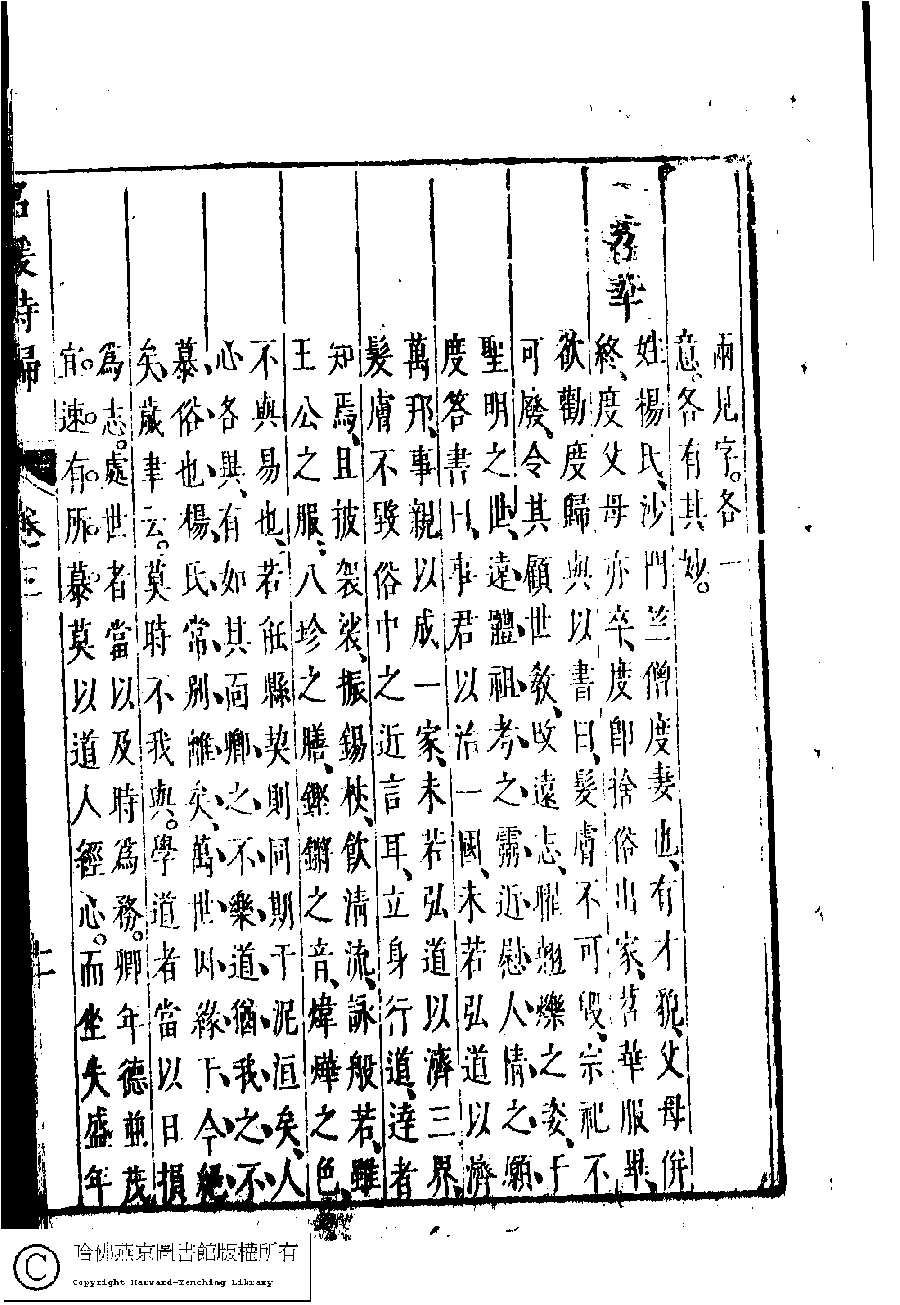 兩見字。各一
意。各有其妙。
苕華
姓楊氏、沙門竺僧度妻也、有才貌、父母併
終、度父母亦卒、度卽捨俗出家、苕華服畢、
欲勸度歸與以書曰、髮膚不可毀、宗祀不
可廢、令其顧世敎、改遠志、曜翹爍之姿、于
聖明之世、遠體祖考之靈、近慰人情之願、
度答書曰、事君以治一國、未若弘道以濟
萬邦、事親以成一家、未若弘道以濟三界、
髮膚不毀俗中之近言耳、立身行道、達者
知焉、且披袈裟、振錫杖、飲清流、詠般若、雖
王公之服、八珍之膳、鏗鏘之音、煒燁之色、
不與易也、若能懸契則同期于泥洹矣、人
心、各異、有如其面卿、之、不、樂、道、猶、我、之、不、
慕、俗、也、楊、氏常、別、離、矣、萬、世、以、緣、下、今、絕、
矣、歲聿云。莫時不我與。學道者當以日損
爲志。處世者當以及時爲務。卿年德並茂
宜。速。有。所。慕莫以道人經心。而坐失盛年
名媛詩歸
卷三
哈佛燕京圖書館版權所有
Copyright Harvard-Yenching Library